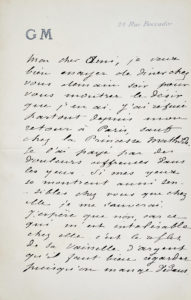 GM
24 Rue Boccador
Mon cher Ami, je veux
bien essayer de diner chez
vous demain soir pour
vous montrer le désir
que j'en ai. J'ai refusé
partout depuis mon
retour à Paris, sauf
chez la Princesse Mathilde
Je l'ai payé par des
douleurs affreuses dans
les yeux. Si mes yeux
se montrent aussi sen-
sibles chez vous que chez
elle je me sauverai.
J'espère que non, car ce
qui m'est intolérable
chez elle c'est le reflet
de la vaisselle d'argent
qu'il faut bien regarder
puisqu'on mange dedans